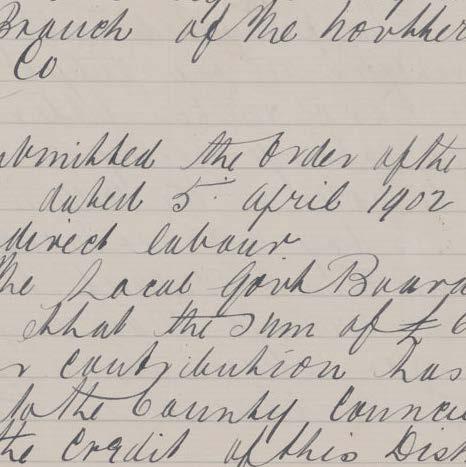 Branch of the Northern
Co
ubmitted the Order of the
dated 5 April 1902
direct labour
The Local Govt Board
that the sum of £ 6
r contribution has
to the County Council
the Credit of this Dist